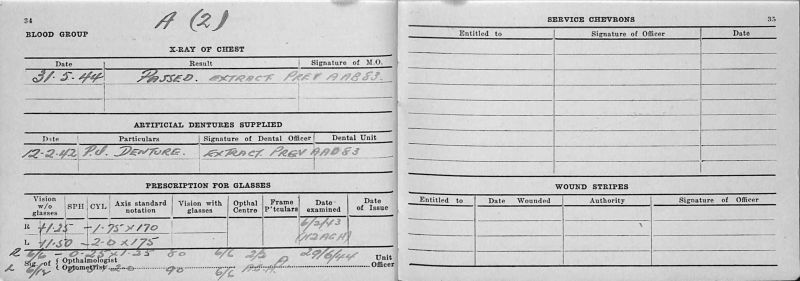 34
A (2)
BLOOD GROUP
X-RAY OF CHEST
Date Result Signature of M.O.
31.5.44 PASSED. EXTRACT PREV AAB83.
ARTIFICIAL DENTURES SUPPLIED
Date Particulars Signature of Dental Officer Dental Unit
12-2-42 P.U. DENTURE. EXTRACT PREV AAB83
PRESCRIPTION FOR GLASSES
Vision w/o glasses SPH CYL Axis standard notation Vision with glasses Opthal Centre Frame P'tculars Date examined Date of Issue
R +1.25 -1.75 x 170 6/2/43
L +1.50 -2.0 x 175 (112 AGH)
R 6/6 -0.25 x 1.25 80 6/6 2/2 A 29/6/44
Sig. of { Opthalmologist Unit
{ Optometrist Officer
L 6/12 2.0 90 6/6
35
SERVICE CHEVRONS
Entitled to Signature of Officer Date
WOUND STRIPES
Entitled to Date Wounded Authority Signature of Officer